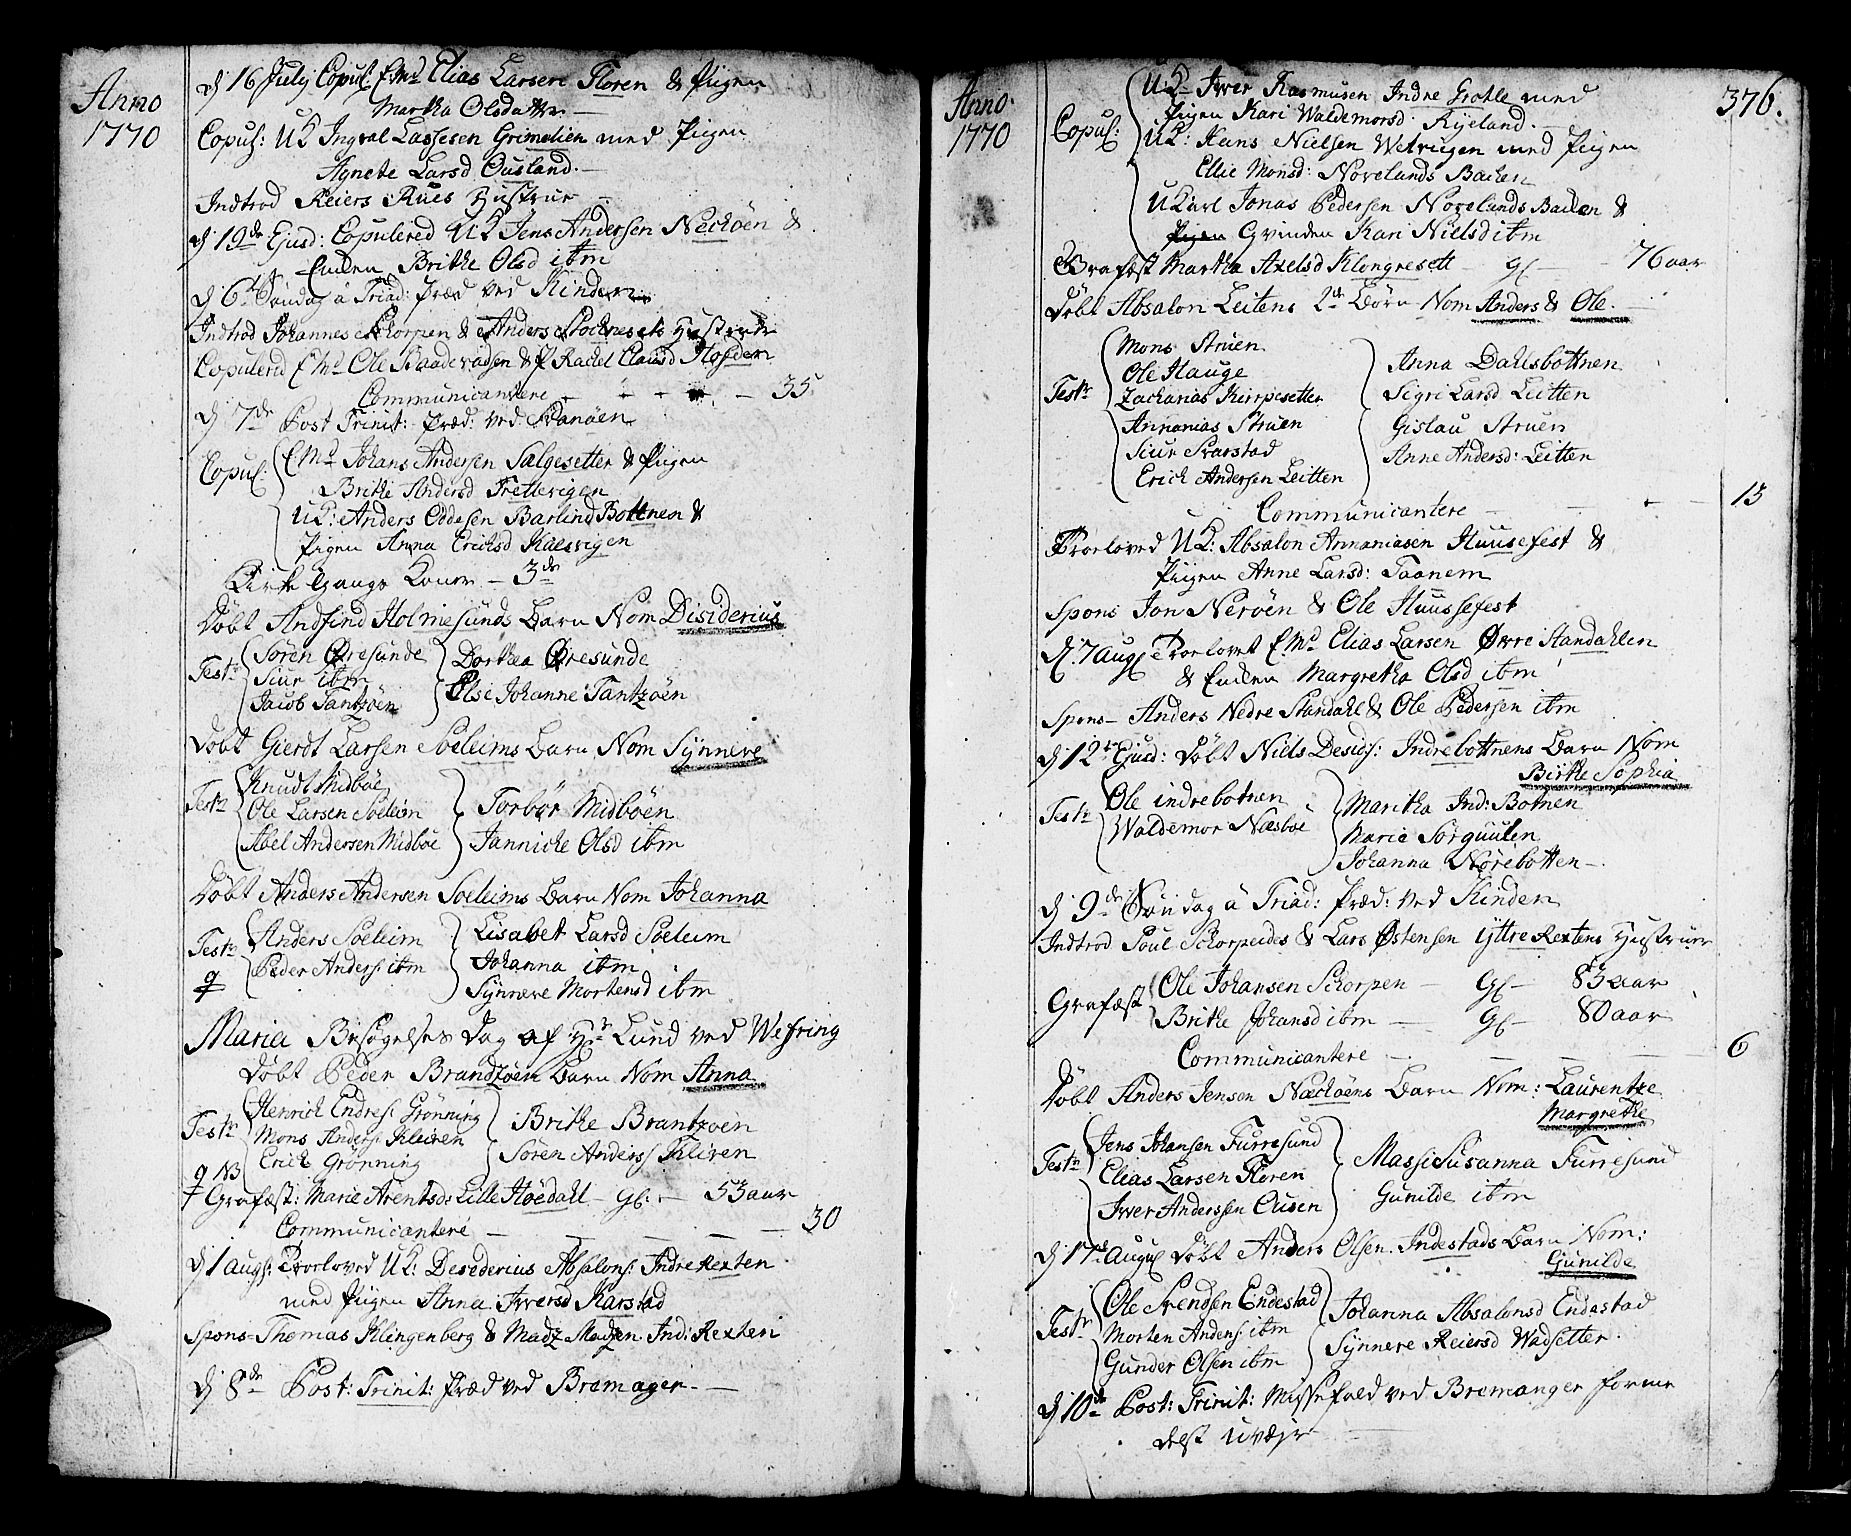 Anno
1770
Dj 16 July Copul: E.Md Elias Larsen Floren & Pigen
Martha Olsdatter —
Copul: UK Ingval Lassesen Grimelien med Pigen
Agnete Larsd Ousland. —
Indtrod Reiers Rues Hustrue —
Dj 19de Ejusd: Copulered UK Jens Andersen Nechøen &
Enken Brithe Olsd ibm
Dj 6te Søndag à Triad: Præd ved Kinden
Indtrod Johannes Schorpen & Anders Stochnesets Hustruer
Copulerd E Md Ole Baadsvadsen & P Rachel Clausd Hosden
Communicantere — — — — 35
Dj 7de Post Trinit: Præd: ved: Svanøen
Copul: E Md Johans Andersen Salgesetter & Pigen
Brithe Andersd Trettevigen
UK: Anders Oddesen Barlind Bottnen &
Pigen Anna Erichsd Kalsvigen
Kirke Gangs Koner — 3de
Døbt Andfind Holmesunds Barn Nom Disiderius
Test: Søren Øresunde
Siur ibm
Jacob Tantzøen
Dorthea Øresunde
Else Johanne Tantzøen
Døbt Gierdt Larsen Soeleims Barn Nom Synnere
Test: Knudt Midbøe
Ole Larsen Soeleim
Abel Andersen Midbøe
Torbør Midbøen
Jannicke Olsd ibm
Døbt Anders Andersen Soeleims Barn Nom Johanna
Test: Anders Soeleim
Peder Anders: ibm
Lisabet Larsd Soeleim
Johanna ibm
Synnere Mortensd ibm
Maria Besøgelses Dag af Hr Lund ved Wefring
Døbt Peder Brandzøen Barn Nom Anna
Test: Henrich Endres: Grønning
Mons Anders: Kleiven
Erich Grønning
Brithe Brantzøen
Søren Anders: Kliven
NB
Grafæst: Marie Arentsd: Lille Høedahl — Gl: — 53 aar
Communicantere — — — — 30
Dj 1 Augs: Troeloved UK: Desederius Absalons: Indre Rexten
med Pigen Anna Iversd Karstad
Spons — Thomas Klingenberg & Madz Madzen Ind: Rexten
Dj 8de Post: Trinit: Præd ved Bremager —
Anno
1770
376.
Copul: UK Iver Rasmusen Indre Grotle med
Pigen Kari Waldemorsd: Ryeland. —
UK: Hans Nielsen Wetvigen med Pigen
Ellie Monsd: Novelands Bachen
UKarl Jonas Pedersen Novelands Bachen &
Pigen Qvinden Kari Nielsd ibm
Grafæst Martha Axelsd Klongresett — Gl — 76 aar
Døbt Absalon Leitens 2de Børn Nom Anders & Ole —
Test: Mons Struen
Ole Hauge
Zacharias Kirrpesetter
Annanias Struen
Siur Svarstad
Erich Andersen Leitten
Anna Dahlsbottnen
Sigri Larsd Leitten
Gislau Struen
Anne Andersd: Leitten
Communicantere — — — — 13
Troeloved UK: Absalon Annaniasen Huusefest &
Pigen Anne Larsd: Taanem
Spons Jon Nerøen & Ole Huussefest
Dj 7 Augs: Troelovet E.Md Elias Larsen Øvre Standahlen
& Enken Margretha Olsd ibm
Spons — Anders Nedre Standahl & Ole Pedersen ibm
Dj 12te Ejusd: Døbt Niels Desids: Indrebottnens Barn Nom
Birthe Sophia
Test: Ole indrebotnen
Waldemor Næsbøe
Maritha Ind: Botnen
Marie Sørguulen
Johanna Nørebotten —
Dj 9de Søndag à Triad: Præd: ved Kinden
Indtrod Poul Schorpeides & Lars Østensen Yttre Rextens Hustruer
Grafæst Ole Johansen Schorpen — Gl — 83 aar
Brithe Johansd ibm — Gl — 80 aar
Communicantere — — — — 6
Døbt Anders Jensen Nechøens Barn Nom: Laurentze
Margrethe
Test: Jens Johansen Furresund
Elias Larsen Floren
Iver Anderssen Ousen
Massi Susanna Furresund
Gunilde ibm
Dj 17de Augs: Døbt Anders Olsen Indestads Barn Nom:
Gunilde
Test: Ole Svendsen Endestad
Morten Anders: ibm
Gunder Olsen ibm
Johanna Absalonsd Endestad
Synnere Reiersd Wadsetter.
Dj 10de Post: Trinit: Missefald ved Bremanger formedelst
uvæjr —